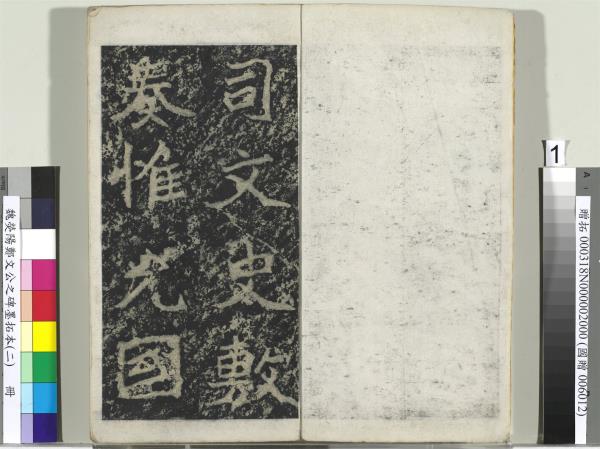 司文史敷
奏惟允國
1
A
贈拓 000318N000002000 (國贈 006012)
魏滎陽鄭文公之碑墨拓本(二) 冊